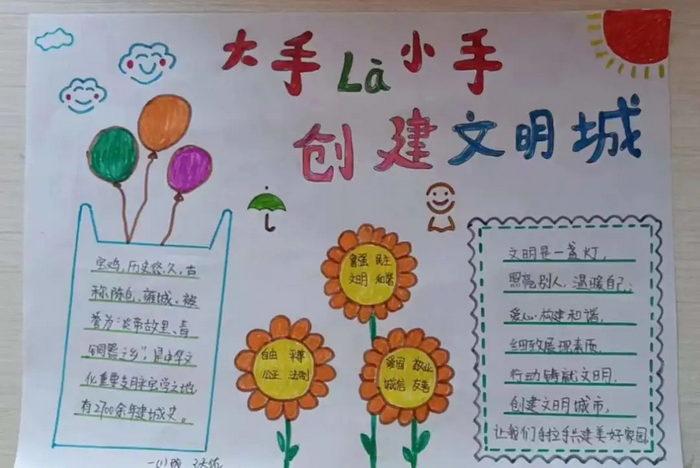 大手Là小手
创建文明城
宝鸡,历史悠久,古
称陈仓、雍城、被
誉为“炎帝故里、青
铜器之乡”,是中华文
化重要发祥
之地
有2700余年建城史。
富强 民主
文明 和谐
自由 平等
公正 法制
爱国 敬业
诚信 友善
文明是一盏灯,
照亮别人,温暖自己;
爱心构建和谐,
细致展现素质,
行动铸就文明,
创建文明城市,
让我们手拉手共建美好家园